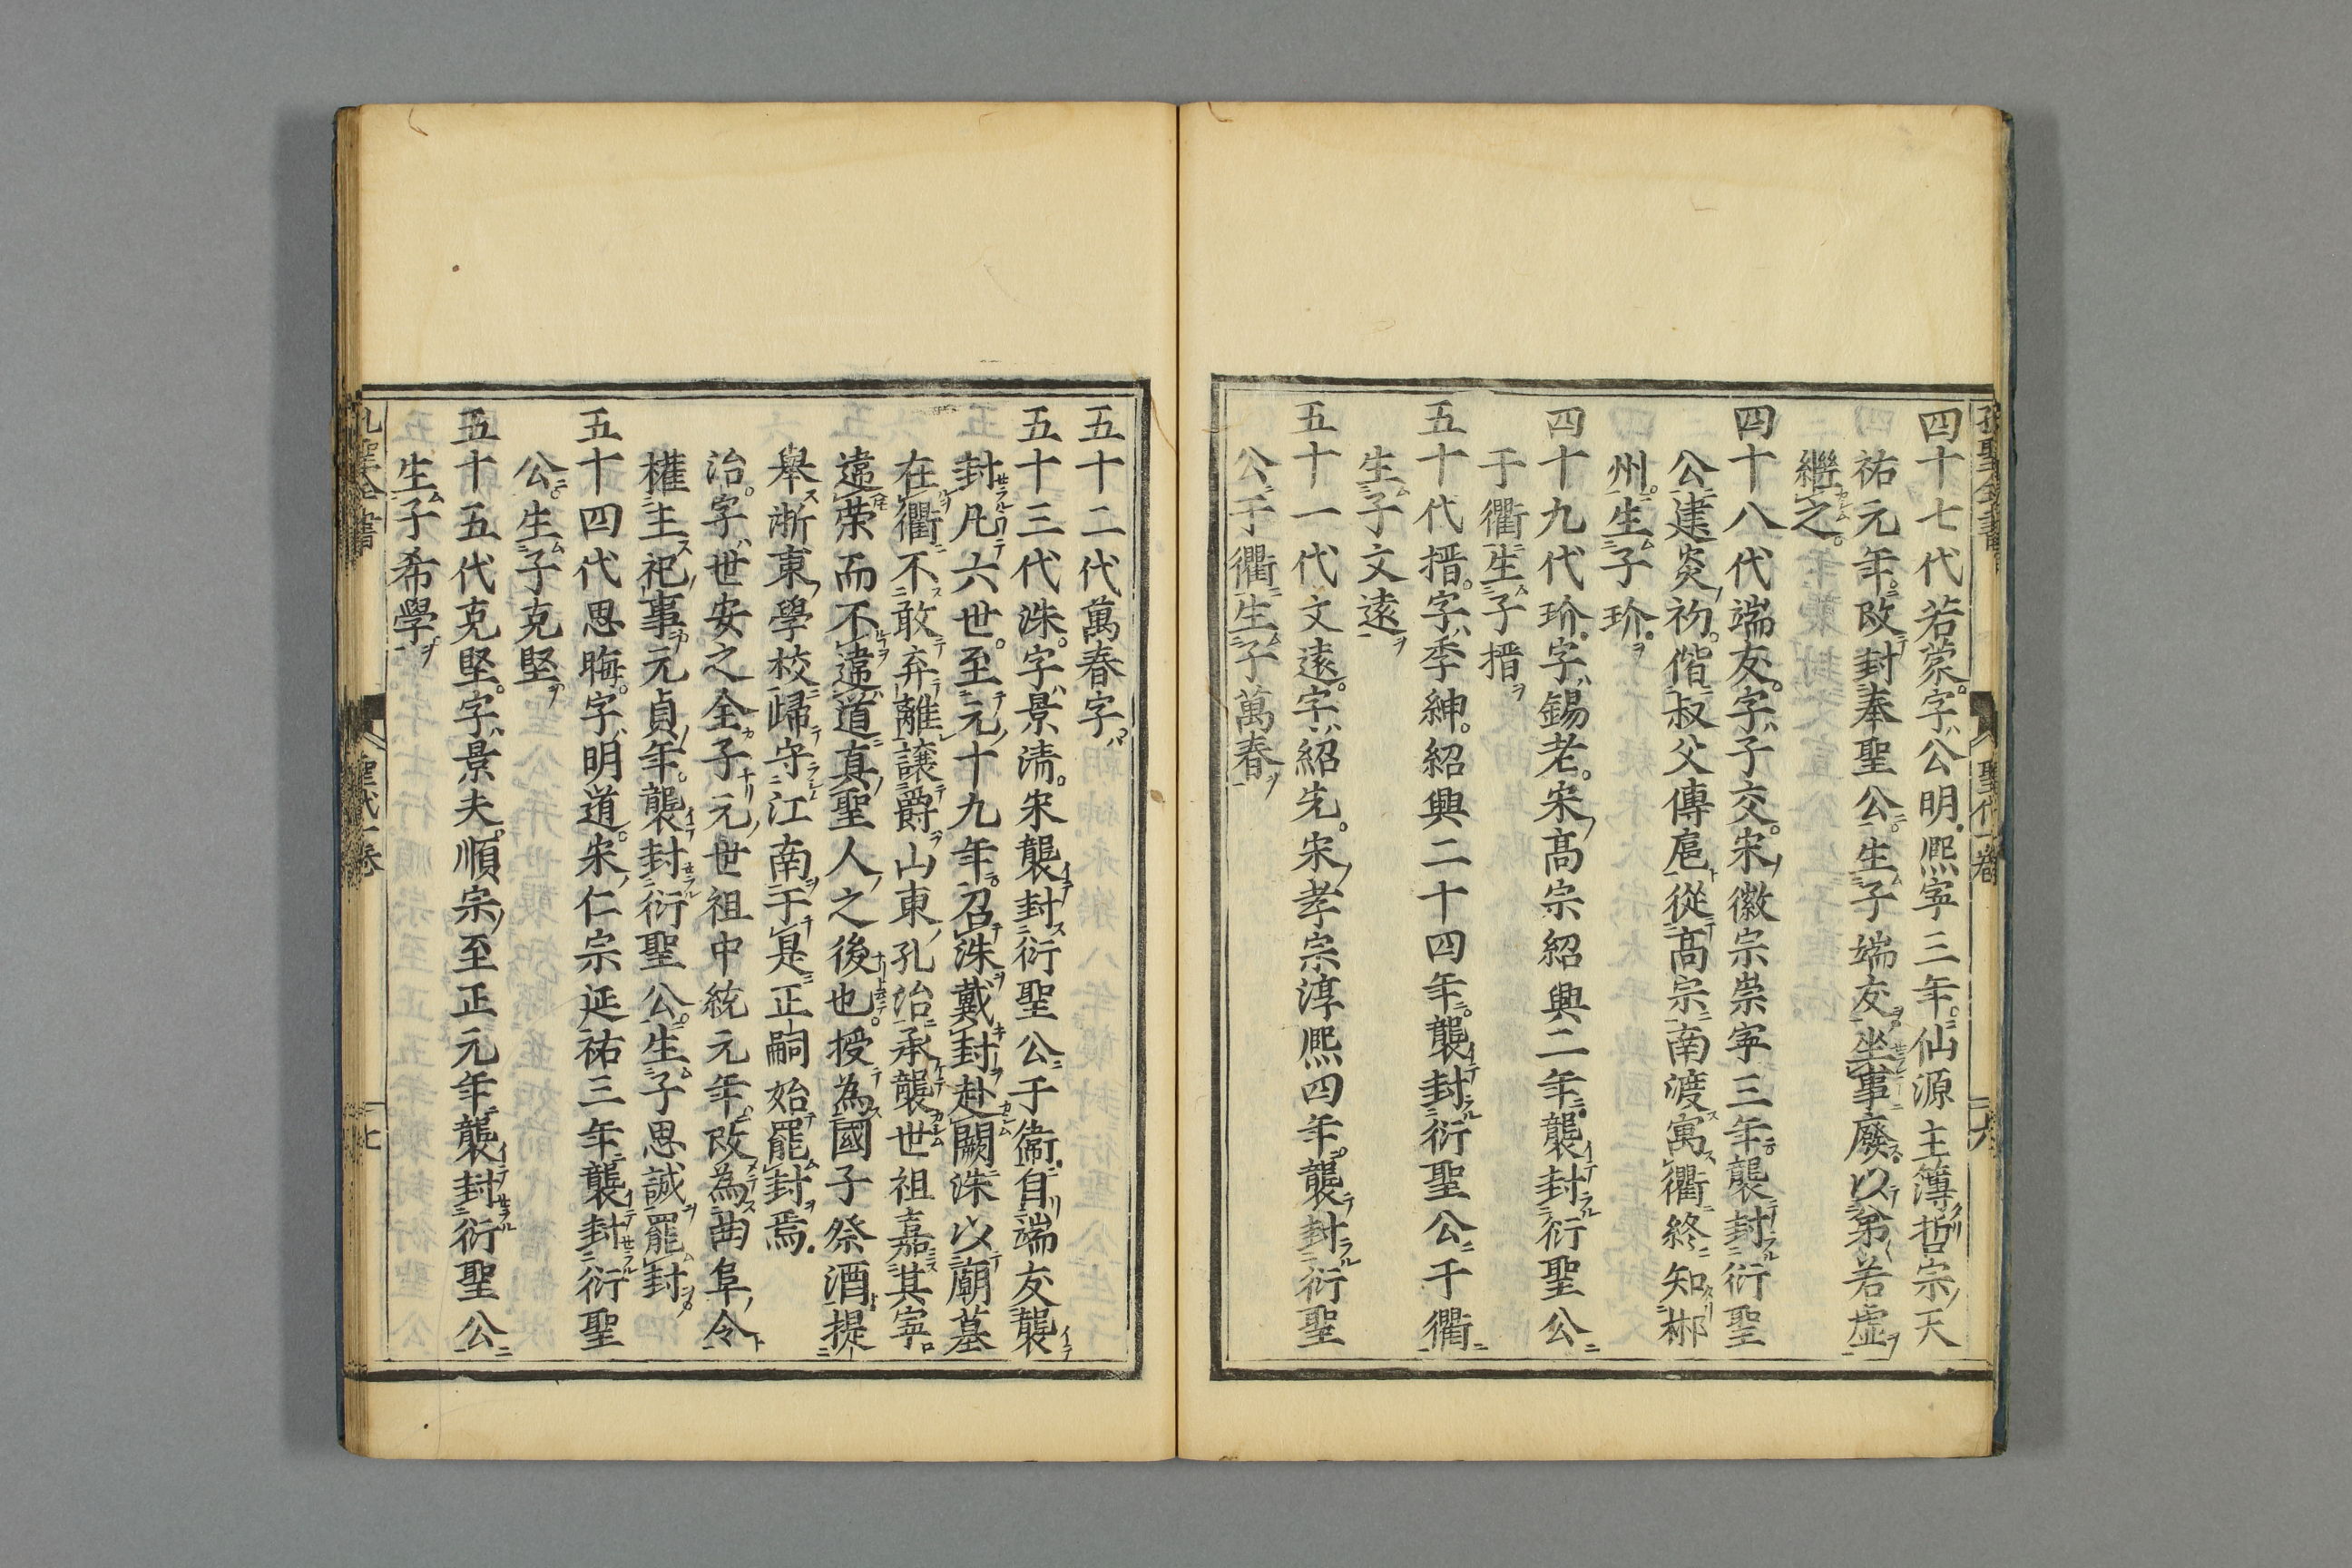 四十七代若蒙字公明熈寧三年仙源主簿哲宗天
祐元年改封奉聖公生子端友坐事廢以弟若虚
繼之
四十八代端友字子交宋徽宗崇寧三年襲封衍聖
公建炎初偕叔父傳扈從髙宗南渡寓衢終知郴
州生子玠
四十九代玠字錫老宋髙宗紹興二年襲封衍聖公
于衢生子搢
五十代搢字季紳紹興二十四年襲封衍聖公于衢
生子文遠
五十一代文遠字紹先宋孝宗淳熈四年襲封衍聖
公于衢生子萬春
五十二代萬春字
五十三代洙字景清宋襲封衍聖公于衢自端友襲
封凡六世至元十九年召洙戴封赴闕洙以廟墓
在衢不敢弃離讓爵山東孔治承襲世祖嘉其寧
違荣而不違道真聖人之後也授為國子祭酒提
舉浙東學校歸守江南于是正嗣始罷封焉
治字世安之全子元世祖中統元年改為曲阜令
權主祀事元貞年襲封衍聖公生子思誠罷封
五十四代思晦字明道宋仁宗延祐三年襲封衍聖
公生子克堅
五十五代克堅字景夫順宗至正元年襲封衍聖公
生子希學